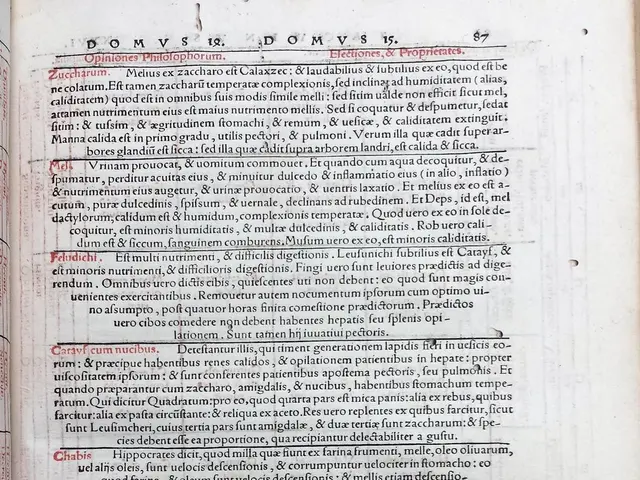 DOMVS 12. DOMVS 15. 87
Opiniones Philosophorum. Electiones, & Proprietates.
Zuccharum. Melius ex zaccharo est Calaxzec: & laudabilius & subtilius ex eo, quod est be
ne colatum. Est tamen zaccharū temperatæ complexionis, sed inclinat ad humiditatem (alias,
caliditatem) quod est in omnibus suis modis simile melli: sed sitim ualde non efficit sicut mel,
attamen nutrimentum eius est maius nutrimento mellis. Sed si coquatur & despumetur, sedat
sitim: & tussim, & ægritudinem stomachi, & renum, & uesicæ, & caliditatem extinguit.
Manna calida est in primo gradu, utilis pectori, & pulmoni. Verum illa quæ cadit super ar-
bores glandiū est sicca: sed illa quæ cadit supra arborem landri, est calida & sicca.
Mel. Vrinam prouocat, & uomitum commouet. Et quando cum aqua decoquitur, & de-
spumatur, perditur acuitas eius, & minuitur dulcedo & inflammatio eius (in alio, inflatio)
& nutrimentum eius augetur, & urinæ prouocatio, & uentris laxatio. Et melius ex eo est a-
cutum, puræ dulcedinis, spissum, & uernale, declinans ad rubedinem. Et Deps, id est, mel
dactylorum, calidum est & humidum, complexionis temperatæ. Quod uero ex eo in sole de-
coquitur, est minoris humiditatis, & multæ dulcedinis, & caliditatis. Rob uero cali-
dum est & siccum, sanguinem comburens. Musum uero ex eo, est minoris caliditatis.
Feludichi. Est multi nutrimenti, & difficilis digestionis. Leusunichi subtilius est Catays, &
est minoris nutrimenti, & difficilioris digestionis. Fingi uero sunt leuiores prædictis ad dige-
rendum. Omnibus uero dictis cibis, quiescentes uti non debent: eo quod sunt magis con-
uenientes exercitantibus. Remouetur autem nocumentum ipsorum cum optimo ui-
no assumpto, post quatuor horas finita comestione prædictorum. Prædictos
uero cibos comedere non debent habentes hepatis seu splenis opi-
lationem. Sunt tamen hij iuuatiui pectoris.
Catays cum nucibus. Detestantur illis, qui timent generationem lapidis fieri in uesicis eo-
rum: & præcipue habentibus renes calidos, & opilationem patientibus in hepate: propter
uiscositatem ipsorum: & sunt conferentes patientibus apostema pectoris, seu pulmonis. Et
quando præparantur cum zaccharo, amigdalis, & nucibus, habentibus stomachum tempe-
ratum. Qui dicitur Quadratum: pro eo, quod quarta pars est mica panis: alia ex rebus, quibus
sarcitur: alia ex pasta circunstante: & reliqua ex aceto. Res uero replentes ex quibus sarcitur, sicut
sunt Leusimcheri, cuius tertia pars sunt amigdalæ, & duæ tertiæ sunt zaccharum: & spe-
cies debent esse ea proportione, qua recipiantur delectabiliter a gustu.
Chabis Hippocrates dicit, quod milla quæ fiunt ex farina frumenti, melle, oleo oliuarum,
uel alijs oleis, sunt uelocis descensionis, & corrumpuntur uelociter in stomacho: eo
quod farina, & oleum sunt uelocis descensionis: & mellis etiam descensio-